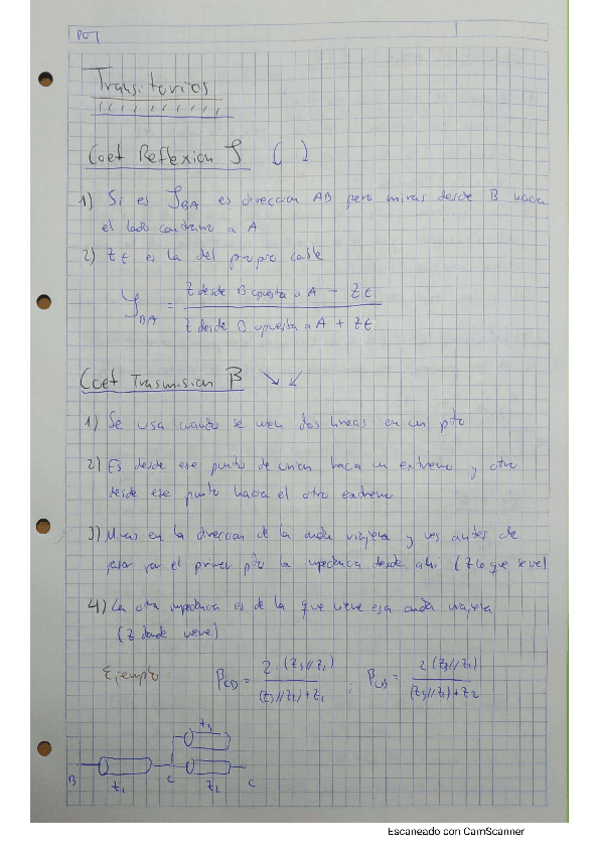 POT
Transitorios
Coef Reflexion ρ ( )
1) Si es ρBA es direccion AB pero miras desde B hacia
el lado contrario a A
2) Zt es la del propio cable
ρBA = Z desde B opuesta a A - Zt
Z desde B opuesta a A + Zt
Coef Trasmision β ↘ ↙
1) Se usa cuando se unen dos lineas en un pto
2) Es desde ese punto de union hacia un extremo y otro
desde ese punto hacia el otro extremo
3) Miras en la direccion de la onda viajera y ves antes de
pasar por el primer pto la impedancia desde ahi (Z lo que se ve)
4) La otra impedancia es de la que viene esa onda viajera
(Z donde viene)
Ejemplo:
= 2·(Z3//Z2)
(Z3//Z2)+Z1
;
= 2(Z3//Z1)
(Z3//Z1)+Z2
Z3
B Z1 C Z2 C
Escaneado con CamScanner